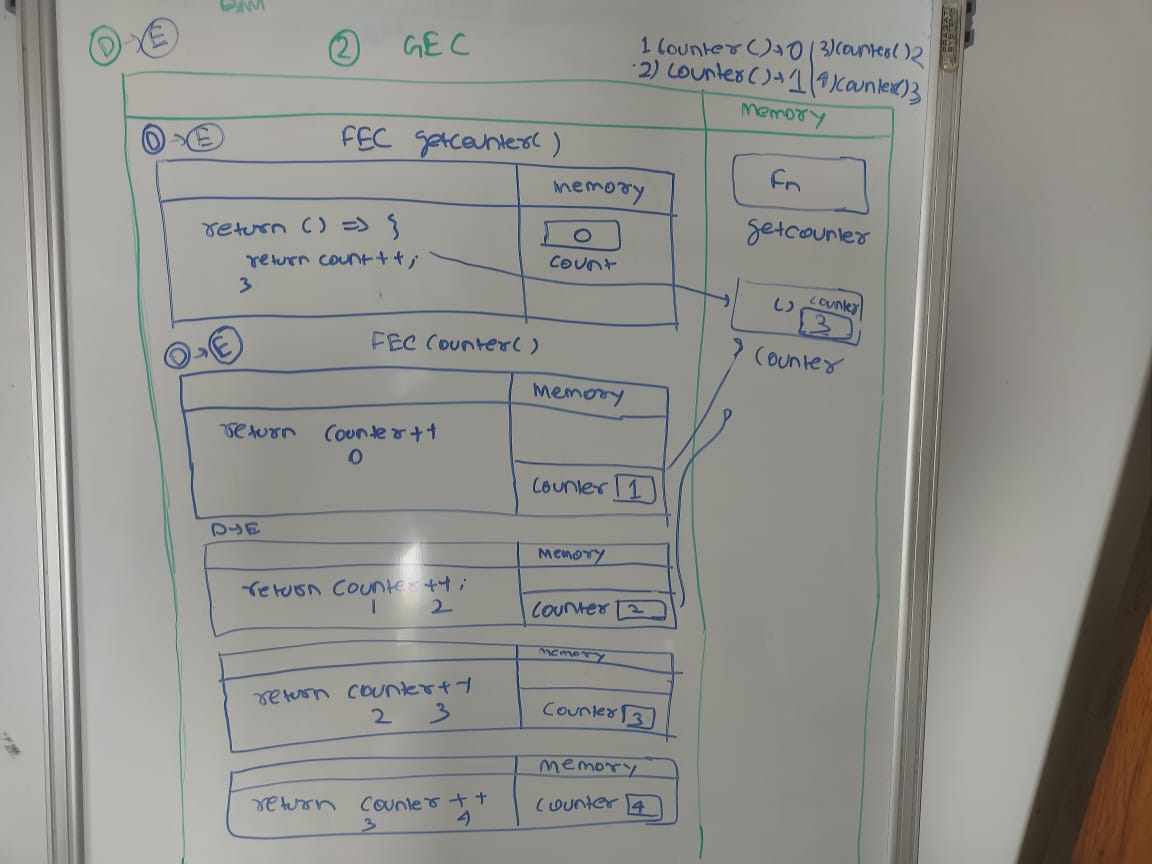 D → E
② GEC
1 Counter() → 0 | 3) Counter() 2
2) Counter() → 1 | 4) Counter() 3
Memory
D → E
FEC getcounter()
Memory
return () => {
return count++;
}
0
count
Fn
getcounter
() counter
3
Counter
D → E
FEC Counter()
Memory
return Counter++
0
Counter 1
D → E
Memory
return Counter++;
1 2
Counter 2
Memory
return counter++
2 3
Counter 3
Memory
return Counter++
3 4
Counter 4